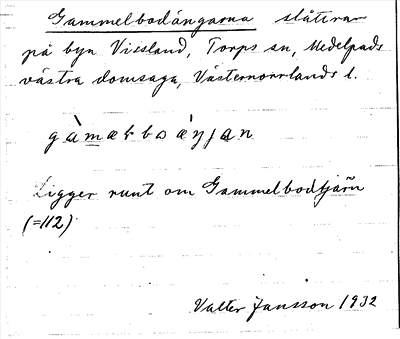 Gammelbodängarna slåttrar
på byn Viksland, Torps sn, Medelpads
västra domsaga, Västernorrlands l.
gàmækbo
Ligger runt om Gammelbodtjärn
(=112)
Valter Jansson 1932